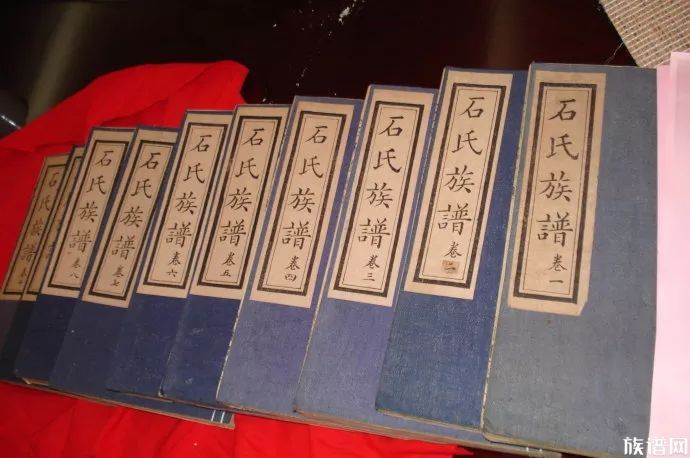 石氏族譜 卷一
石氏族譜 卷二
石氏族譜 卷三
石氏族譜 卷四
石氏族譜 卷五
石氏族譜 卷六
石氏族譜 卷七
石氏族譜 卷八
石氏族譜
族谱网